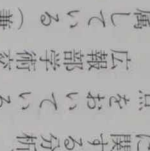 属している（兼
広報部学術交
点をおいている
に関する分析